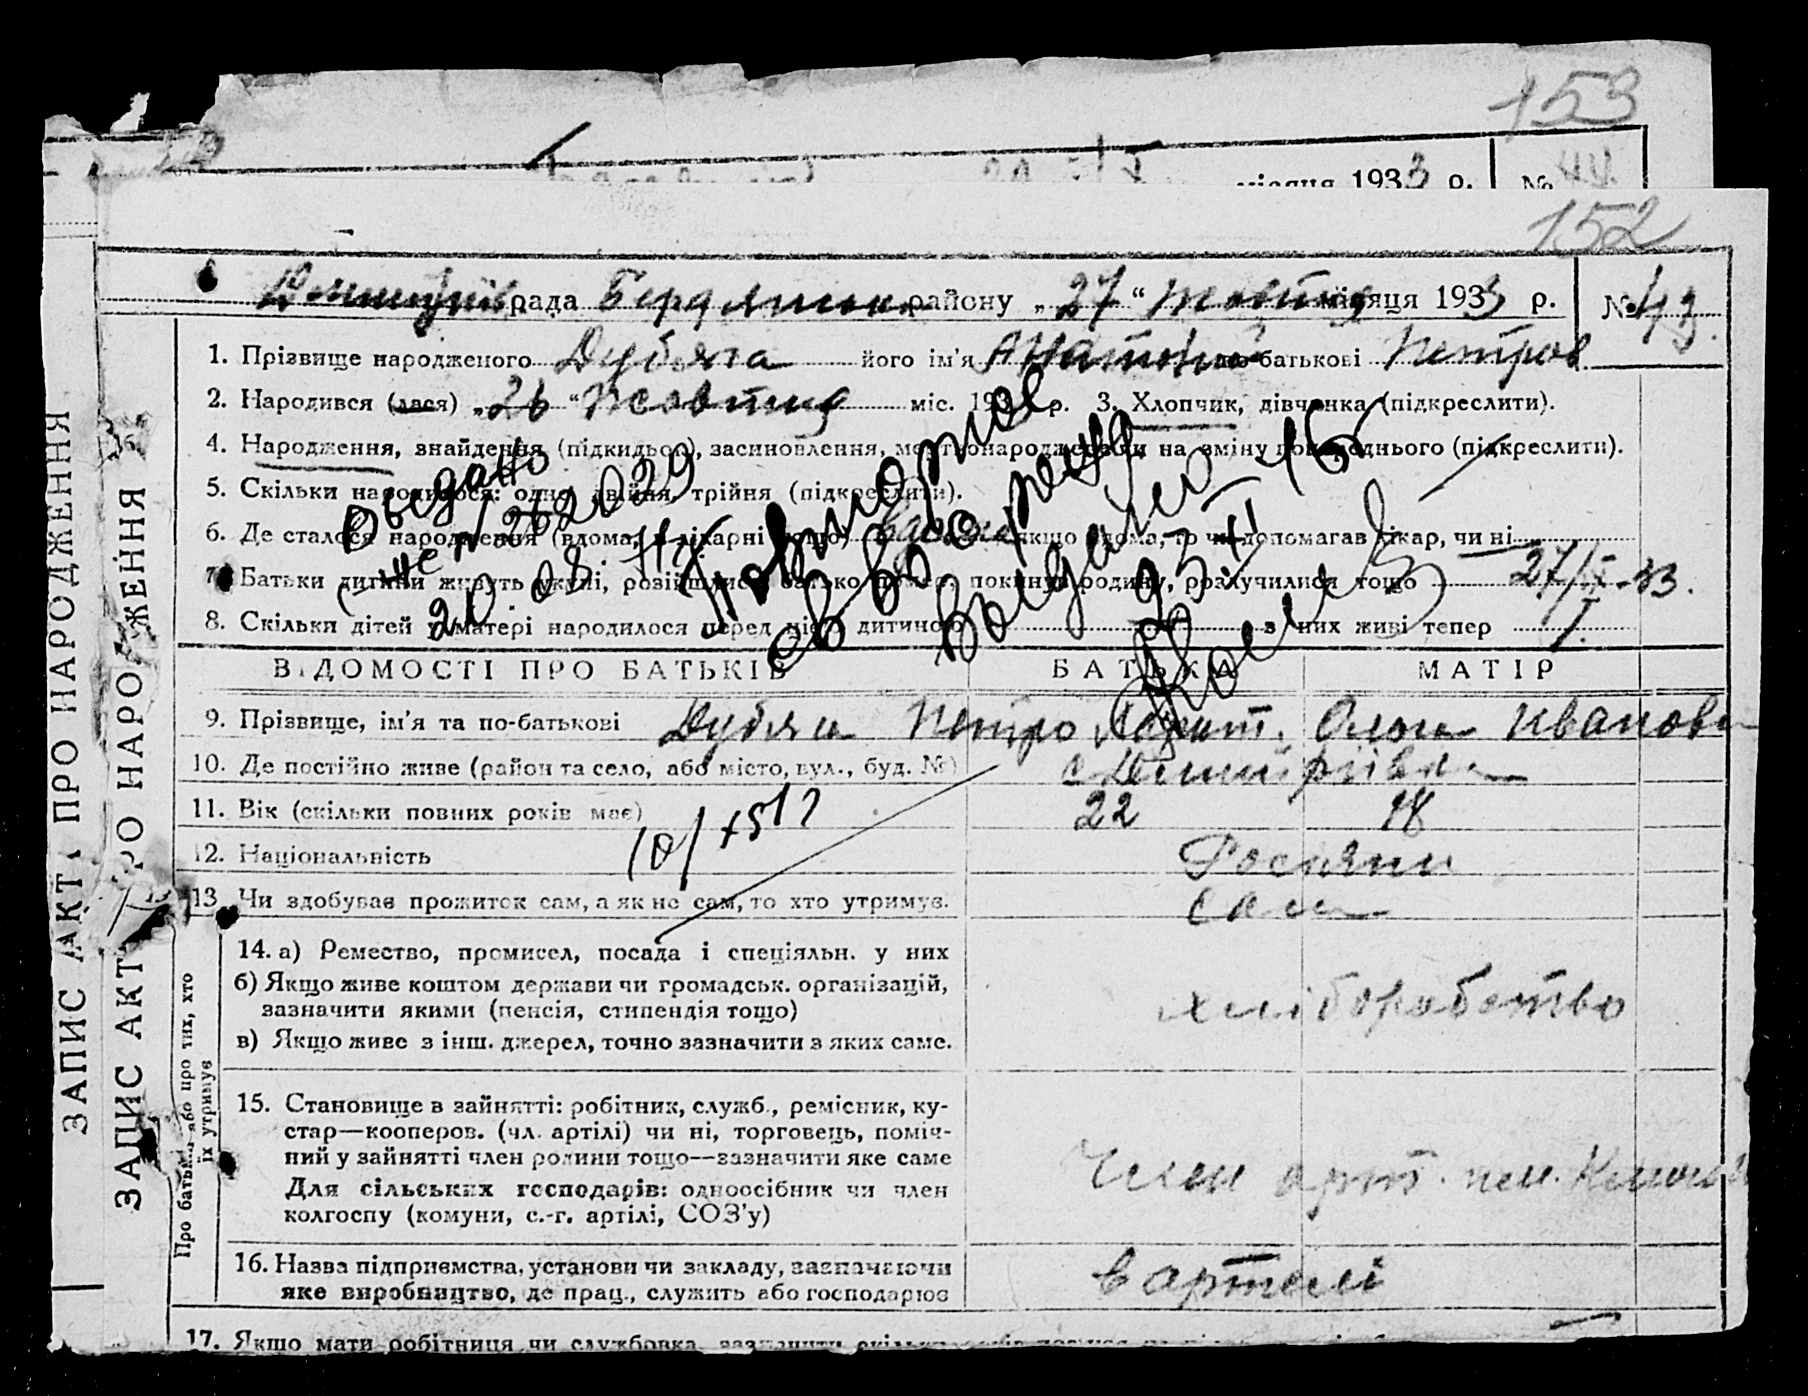 153
місяця 1933 р. № 44
152
рада Бердянськ району „27“ жовтня місяця 1933 р. № 43
1. Прізвище народженого Дубяга його ім'я Анатолій по-батькові Петров.
2. Народився (лася) „26“ Жовтня міс. 193 р. 3. Хлопчик, дівчинка (підкреслити).
4. Народження, знайдення (підкидьок), засиновлення, мертвонародження на зміну попереднього (підкреслити).
5. Скільки народилося: одно, двійня, трійня (підкреслити).
6. Де сталося народження (вдома, в лікарні тощо) вдома якщо вдома, то чи допомагав лікар, чи ні
7. Батьки дитини живуть укупі, розійшлися, батько помер, покинув родину, розлучилися тощо 27/X-33.
8. Скільки дітей у матері народилося перед цією дитиною з них живі тепер 1.
Выдано
20.08
Повторное
св во о рожд
Выдано
23 XI 46
ВІДОМОСТІ ПРО БАТЬКІВ БАТЬКА МАТІР
9. Прізвище, ім'я та по-батькові Дубяга Петро Ольга Иванова
10. Де постійно живе (район та село, або місто, вул., буд. №) с Дмитрівка
11. Вік (скільки повних років має) 22 18
12. Національність Росіяни
13. Чи здобував прожиток сам, а як не сам, то хто утримув. сам
14. а) Ремество, промисел, посада і спеціяльн. у них
б) Якщо живе коштом держави чи громадськ. організацій,
зазначити якими (пенсія, стипендія тощо)
хліборобство
в) Якщо живе з інш. джерел, точно зазначити з яких саме.
15. Становище в зайнятті: робітник, служб., ремісник, ку-
стар—кооперов. (чл. артілі) чи ні, торговець, поміч-
ний у зайнятті член родини тощо—зазначити яке саме
Член арт.
Для сільських господарів: одноосібник чи член
колгоспу (комуни, с.-г. артілі, СОЗ'у)
16. Назва підприємства, установи чи закладу, зазначаючи
яке виробництво, де прац., служить або господарює
в артелі
17. Якщо мати робітниця чи службовка, зазначити
Про батьків або про тих, хто
їх утримує
ЗАПИС АКТ ПРО НАРОДЖЕННЯ
ЗАПИС АКТ ПРО НАРОДЖЕННЯ